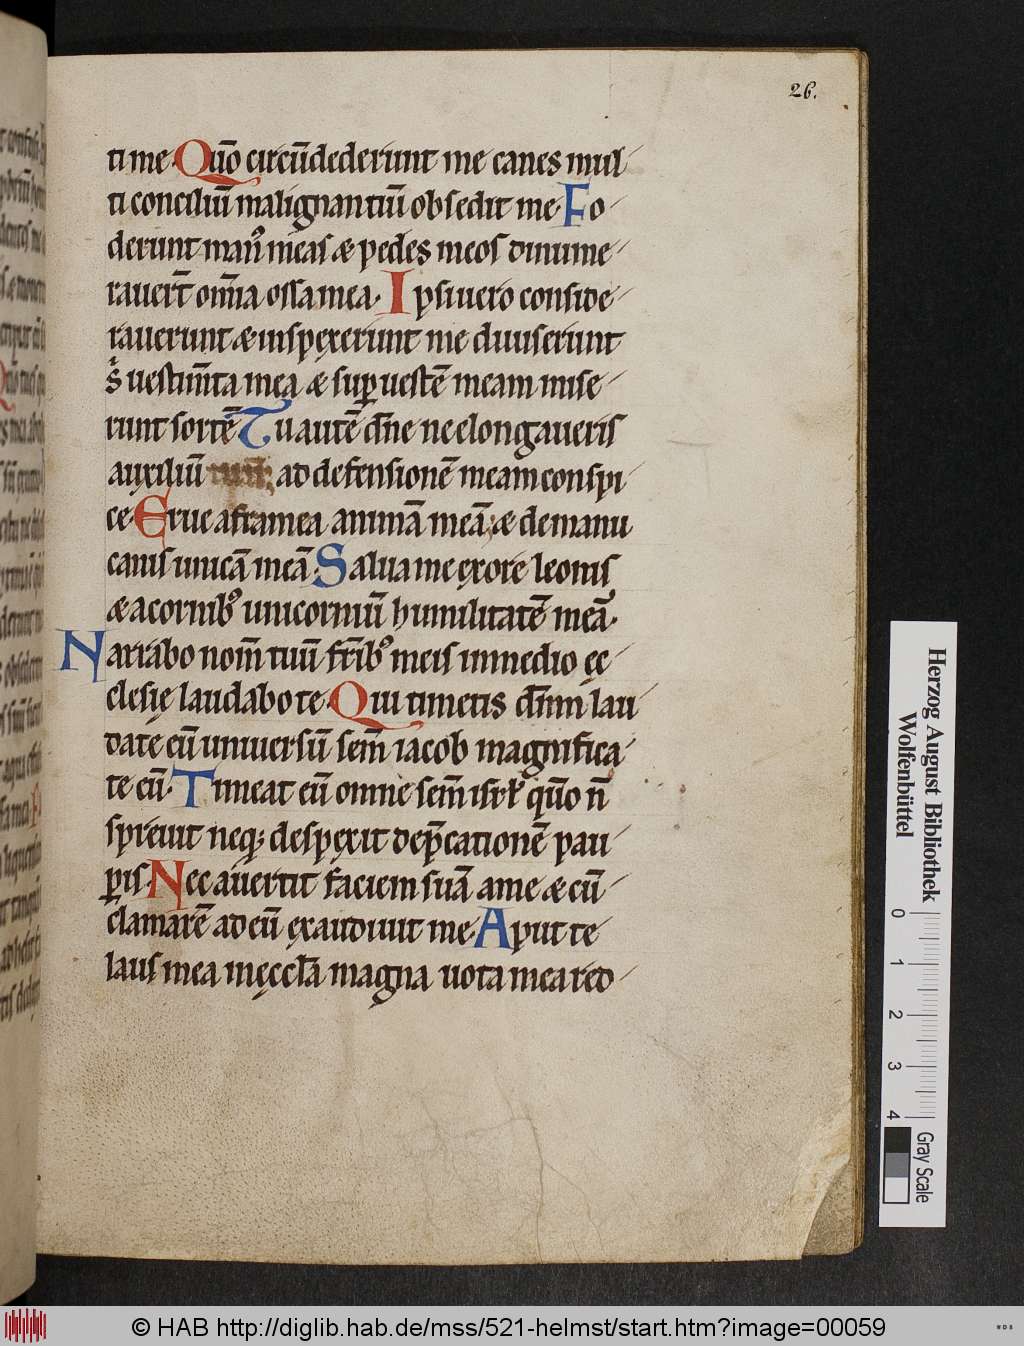 26.
ti me. Qūo circūdederunt me canes mul
ti conciliū malignantiū obsedit me. Fo
derunt man᷒ meas æ pedes meos dinume
rauert̄ om̄ia ossa mea. Ipsi uero conside
rauerunt æ inspexerunt me diuiserunt
s̄ uestim̄ta mea æ sup uestē meam mise
runt sortē Tu autē dn̄e ne elongaueris
auxiliū tuū ad defensionē meam conspi
ce. Erue a framea animā meā; æ de manu
canis unicā meā. Salua me ex ore leonis
æ a cornib᷒ unicorniū humilitatē meā.
Narrabo nom̄ tuū fr̄ib᷒ meis in medio ęc
clesię laudabo te. Qui timetis dn̄m lau
date eū uniuersū sem̄ iacob magnifica
te eū. Timeat eū omne sem̄ isrł qūo n̄
spreuit neq; despexit dep̄cationē pau
ꝑis. Nec auertit faciem suā a me æ cū
clamarē ad eū exaudiuit me. Aput te
laus mea in ęccła magna uota mea red
Herzog August Bibliothek
Wolfenbüttel
0 1 2 3 4
Gray Scale
© HAB http://diglib.hab.de/mss/521-helmst/start.htm?image=00059